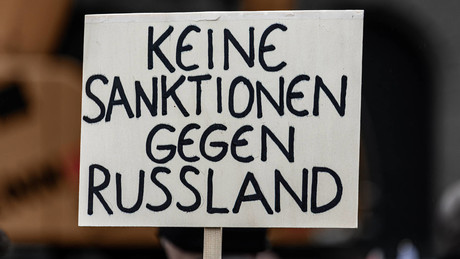 KEINE
SANKTIONEN
GEGEN
RUSSLAND